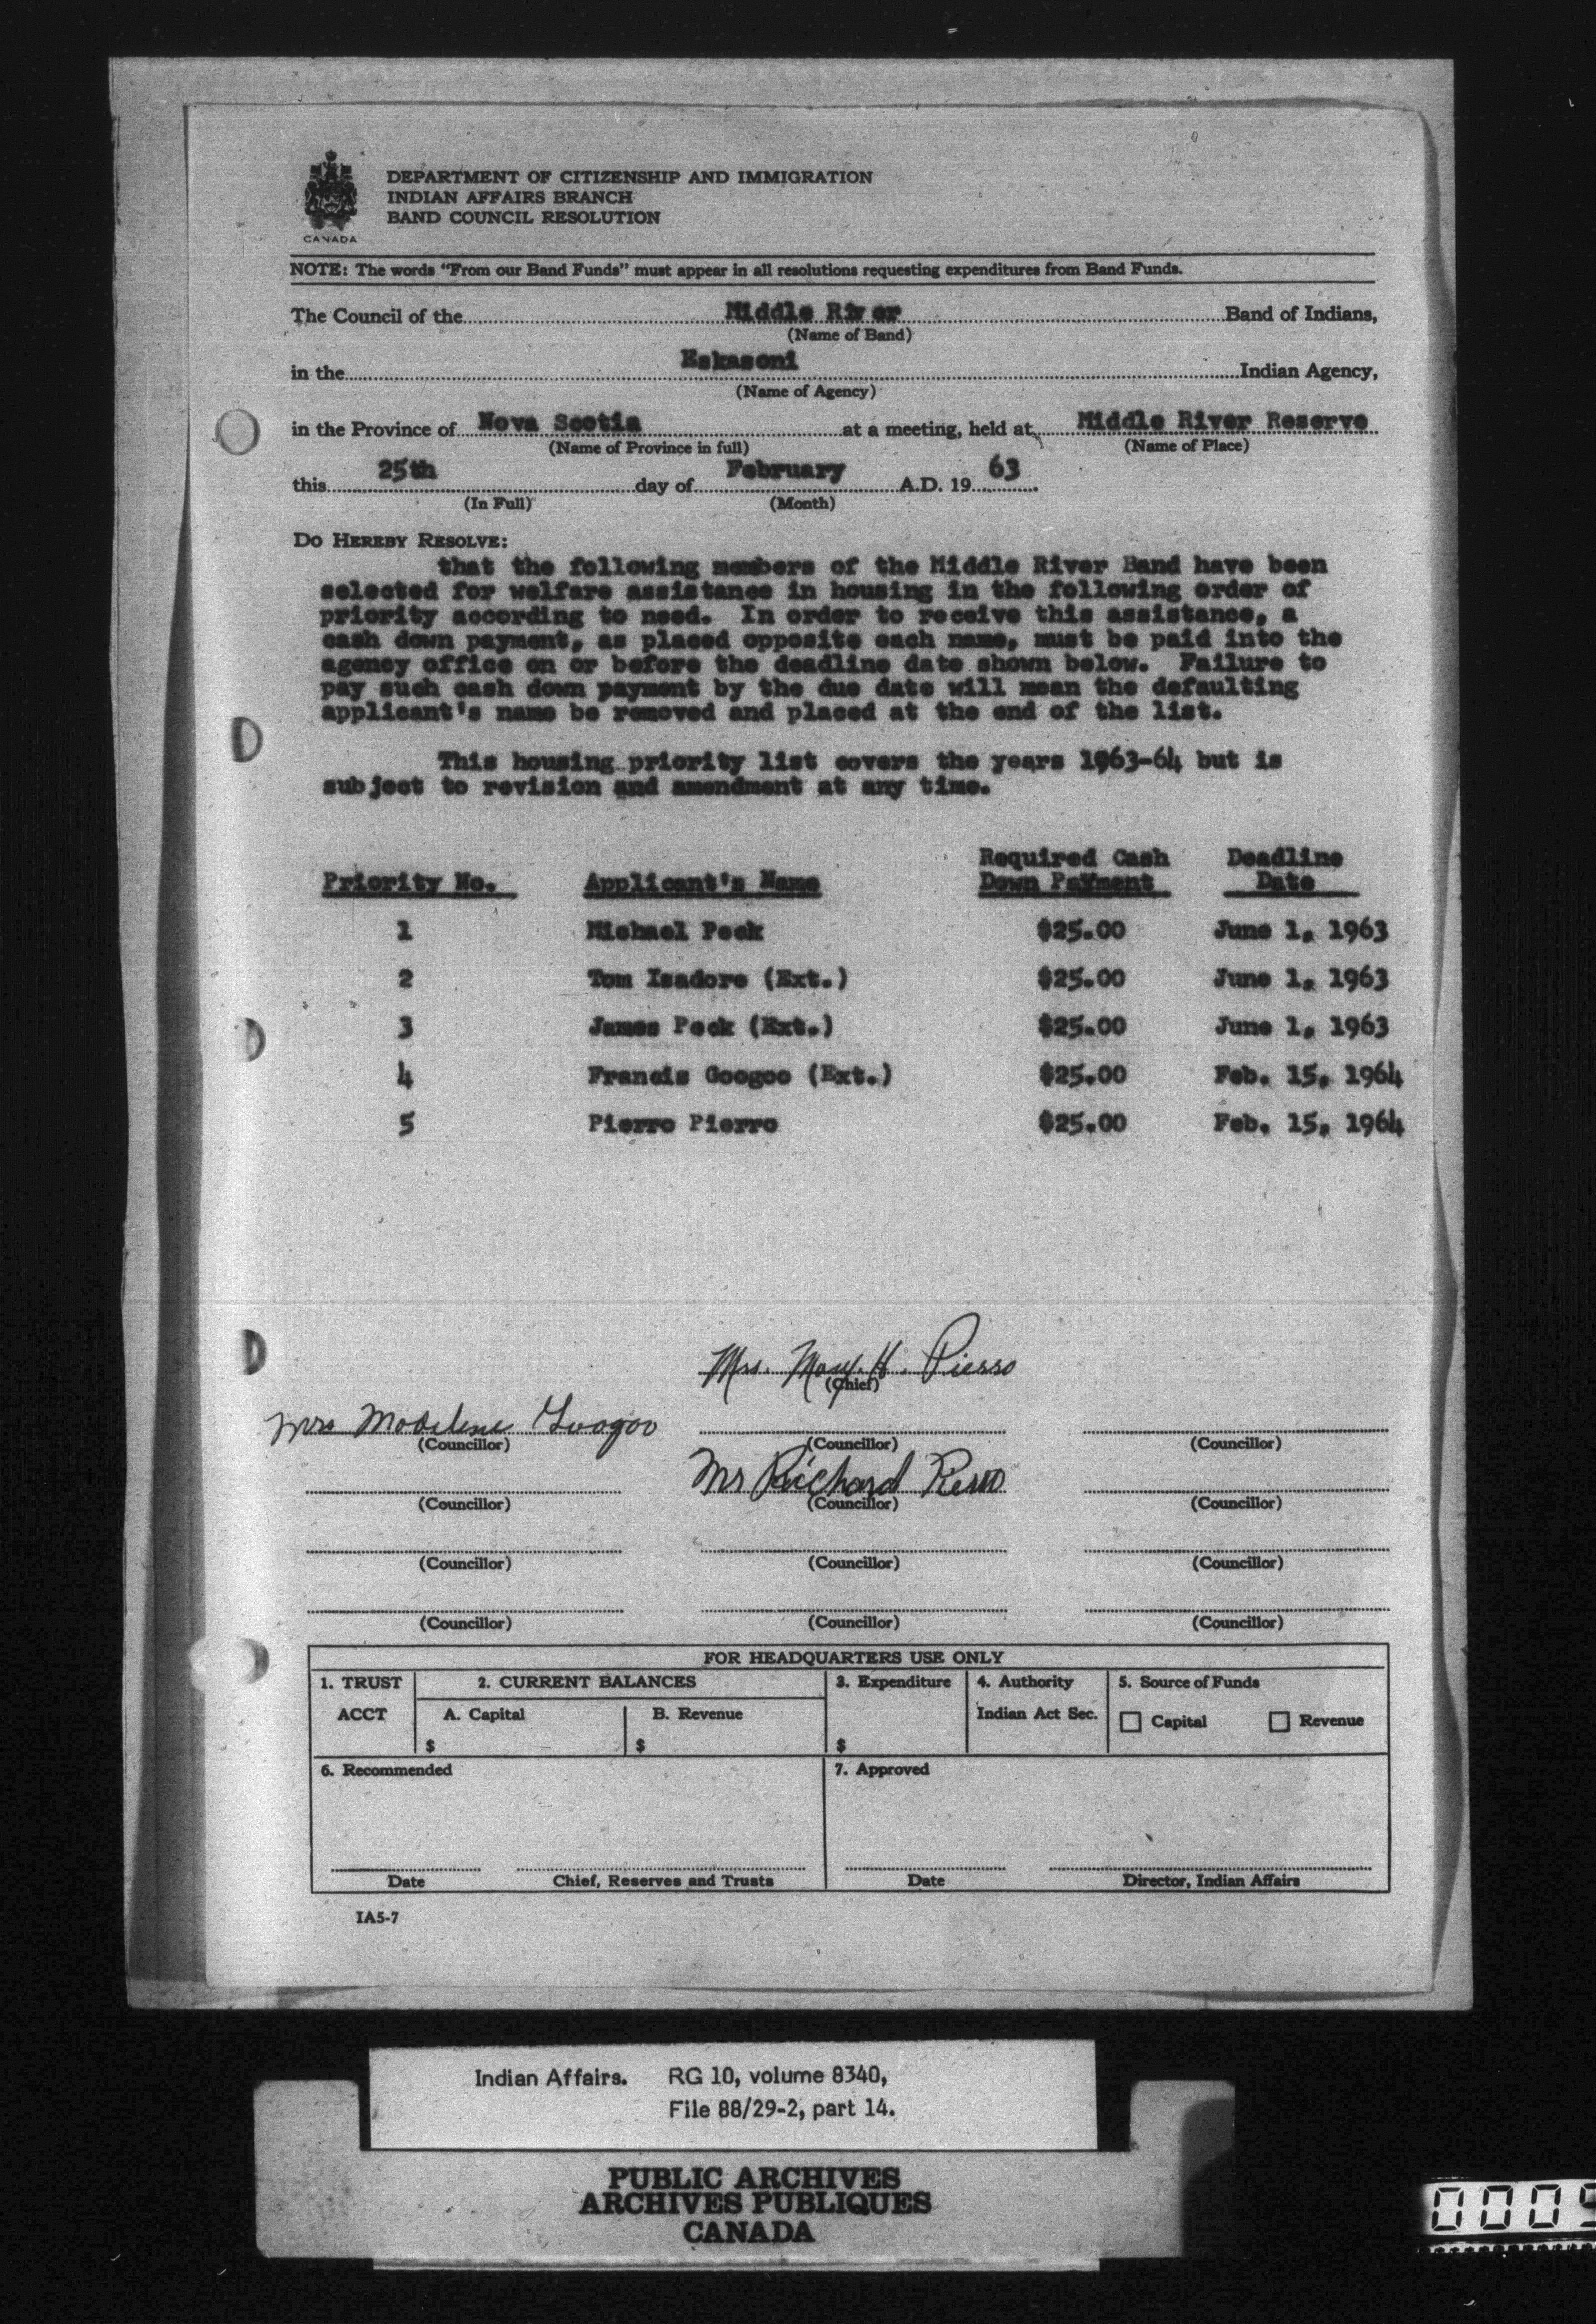 CANADA
DEPARTMENT OF CITIZENSHIP AND IMMIGRATION
INDIAN AFFAIRS BRANCH
BAND COUNCIL RESOLUTION
NOTE: The words "From our Band Funds" must appear in all resolutions requesting expenditures from Band Funds.
The Council of the Middle River Band of Indians,
(Name of Band)
in the Eskasoni Indian Agency,
(Name of Agency)
in the Province of Nova Scotia at a meeting, held at Middle River Reserve
(Name of Province in full) (Name of Place)
this 25th day of February A.D. 19 63
(In Full) (Month)
DO HEREBY RESOLVE:
that the following members of the Middle River Band have been
selected for welfare assistance in housing in the following order of
priority according to need. In order to receive this assistance, a
cash down payment, as placed opposite each name, must be paid into the
agency office on or before the deadline date shown below. Failure to
pay such cash down payment by the due date will mean the defaulting
applicant's name be removed and placed at the end of the list.
This housing priority list covers the years 1963-64 but is
subject to revision and amendment at any time.
Required Cash Deadline
Priority No. Applicant's Name Down Payment Date
1 Michael Peck $25.00 June 1, 1963
2 Tom Isadore (Ext.) $25.00 June 1, 1963
3 James Peck (Ext.) $25.00 June 1, 1963
4 Francis Googoo (Ext.) $25.00 Feb. 15, 1964
5 Pierro Pierro $25.00 Feb. 15, 1964
Mrs. Mary. H. Pierro
(Chief)
Mrs Madelene Googoo
(Councillor) (Councillor) (Councillor)
Mr Richard
(Councillor) (Councillor) (Councillor)
(Councillor) (Councillor) (Councillor)
(Councillor) (Councillor) (Councillor)
FOR HEADQUARTERS USE ONLY
1. TRUST 2. CURRENT BALANCES 3. Expenditure 4. Authority 5. Source of Funds
ACCT A. Capital B. Revenue Indian Act Sec. Capital Revenue
$ $ $
6. Recommended 7. Approved
Date Chief, Reserves and Trusts Date Director, Indian Affairs
IA5-7
Indian Affairs. RG 10, volume 8340,
File 88/29-2, part 14.
PUBLIC ARCHIVES
ARCHIVES PUBLIQUES
CANADA